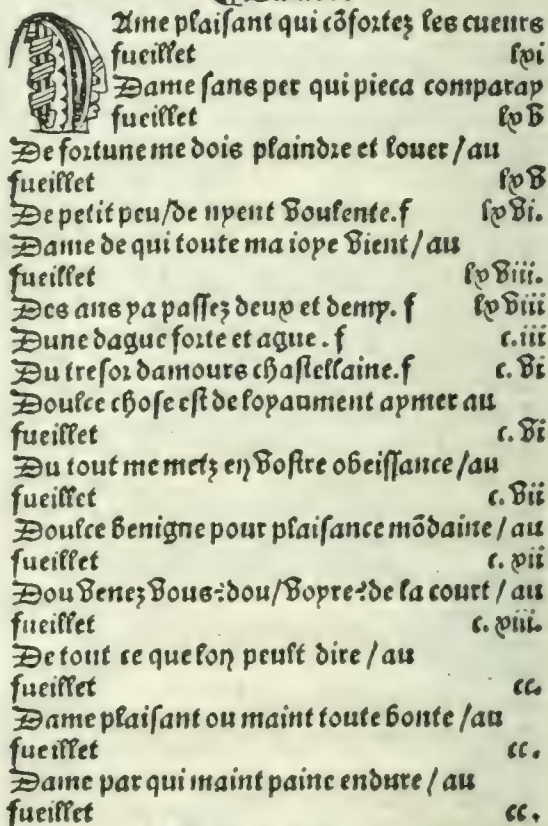 DAme plaisant qui cõfortez les cueurs
fueillet lxi
Dame sans per qui pieca comparay
fueillet lxv
De fortune me dois plaindre et louer / au
fueillet lxv
De petit peu/de nyent voulente.f lxvi.
Dame de qui toute ma ioye vient / au
fueillet lxviii.
Des ans ya passez deux et demy. f lxviii
Dune dague forte et ague . f c.iii
Du tresor damours chastellaine.f c. vi
Doulce chose est de loyaument aymer au
fueillet c. vi
Du tout me metz en vostre obeissance /au
fueillet c. vii
Doulce benigne pour plaisance mõdaine / au
fueillet c. xii
Dou venez vous:dou/voyre:de la court / au
fueillet c. xiii.
De tout ce que lon peult dire / au
fueillet cc.
Dame plaisant ou maint toute bonte /au
fueillet cc.
Dame par qui maint paine endure / au
fueillet cc.